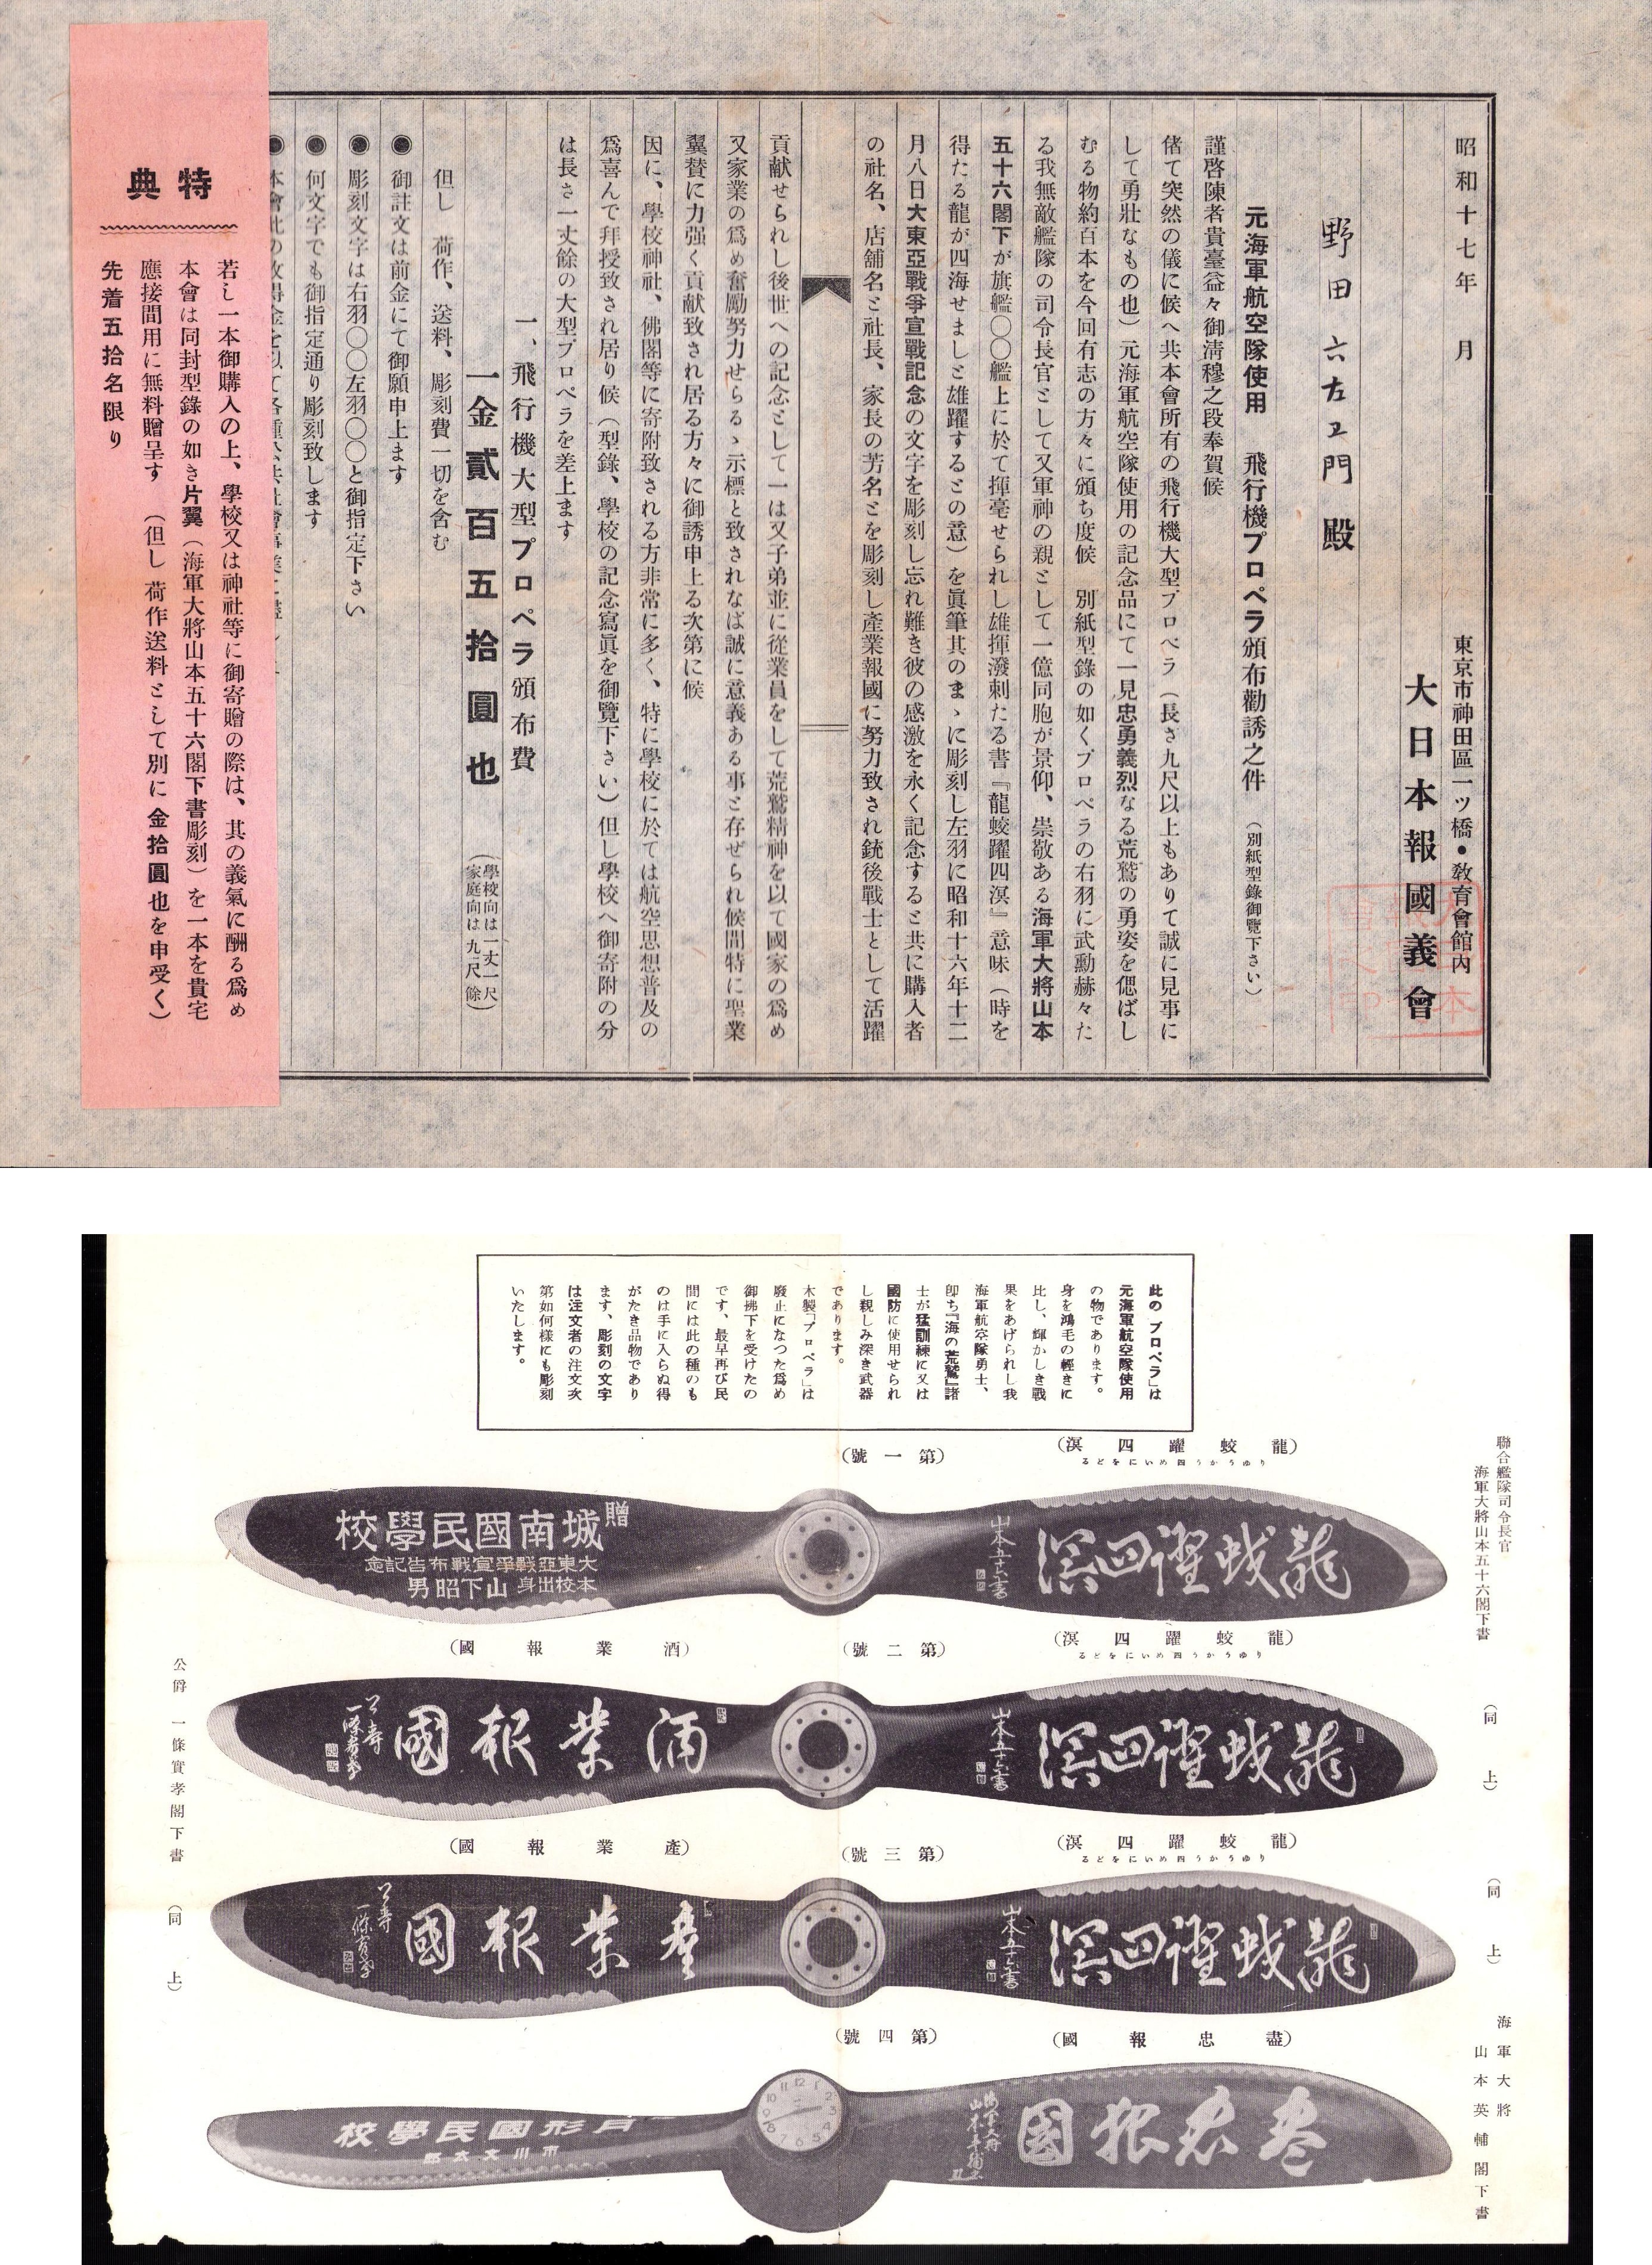 昭和十七年　月
東京市神田區一ツ橋・教育會館内
大日本報國義會
野田六左ヱ門殿
元海軍航空隊使用　飛行機プロペラ頒布勸誘之件（別紙型錄御覽下さい）
謹啓陳者貴臺益々御淸穆之段奉賀候
偖て突然の儀に候へ共本會所有の飛行機大型プロペラ（長さ九尺以上もありて誠に見事に
して勇壯なもの也）元海軍航空隊使用の記念品にて一見忠勇義烈なる荒鷲の勇姿を偲ばし
むる物約百本を今回有志の方々に頒ち度候　別紙型錄の如くプロペラの右羽に武勳赫々た
る我無敵艦隊の司令長官として又軍神の親として一億同胞が景仰、崇敬ある海軍大將山本
五十六閣下が旗艦〇〇艦上に於て揮毫せられし雄揮潑剌たる書『龍蛟躍四溟』意味（時を
得たる龍が四海せましと雄躍するとの意）を眞筆其のまゝに彫刻し左羽に昭和十六年十二
月八日大東亞戰爭宣戰記念の文字を彫刻し忘れ難き彼の感激を永く記念すると共に購入者
の社名、店舖名と社長、家長の芳名とを彫刻し產業報國に努力致され銃後戰士として活躍
貢献せられし後世への記念として一は又子弟並に從業員をして荒鷲精神を以て國家の爲め
又家業の爲め奮勵努力せらるゝ示標と致されなば誠に意義ある事と存ぜられ候間特に聖業
翼贊に力强く貢献致され居る方々に御誘申上る次第に候
因に、學校神社、佛閣等に寄附致される方非常に多く、特に學校に於ては航空思想普及の
爲喜んで拜授致され居り候（型錄、學校の記念寫眞を御覽下さい）但し學校へ御寄附の分
は長さ一丈餘の大型プロペラを差上ます
一、飛行機大型プロペラ頒布費
一金貳百五拾圓也（學校向は一丈一尺
家庭向は九尺餘）
但し　荷作、送料、彫刻費一切を含む
◉御註文は前金にて御願申上ます
◉彫刻文字は右羽〇〇左羽〇〇と御指定下さい
◉何文字でも御指定通り彫刻致します
特典
若し一本御購入の上、學校又は神社等に御寄贈の際は、其の義氣に酬る爲め
本會は同封型錄の如き片翼（海軍大將山本五十六閣下書彫刻）を一本を貴宅
應接間用に無料贈呈す　（但し　荷作送料として別に金拾圓也を申受く）
先着五拾名限り
此の プロペラ」は
元海軍航空隊使用
の物であります。
身を鴻毛の輕きに
比し、輝かしき戰
果をあげられし我
海軍航空隊勇士、
卽ち『海の荒鷲』諸
士が猛訓練に又は
國防に使用せられ
し親しみ深き武器
であります。
木製「プロペラ」は
廢止になつた爲め
御拂下を受けたの
です、最早再び民
間には此の種のも
のは手に入らぬ得
がたき品物であり
ます、彫刻の文字
は注文者の注文次
第如何樣にも彫刻
いたします。
聯合艦隊司令長官
海軍大將山本五十六閣下書
（龍蛟躍四溟）
りゆうかう四めいにをどる
（第一號）
龍蛟躍四溟
山本五十六書
贈
城南國民學校
大東亞戰爭宣戰布告記念
本校出身 山下昭男
（同上）
（龍蛟躍四溟）
りゆうかう四めいにをどる
（第二號）
（酒業報國）
龍蛟躍四溟
山本五十六書
酒業報國
公爵　一條實孝閣下書
（同上）
（龍蛟躍四溟）
りゆうかう四めいにをどる
（第三號）
（產業報國）
龍蛟躍四溟
山本五十六書
產業報國
（同上）
海軍大將
山本英輔閣下書
（盡忠報國）
（第四號）
盡忠報國
月形國民學校
市川文太郎
12 1 2 3 4 5 6 7 8 9 10 11